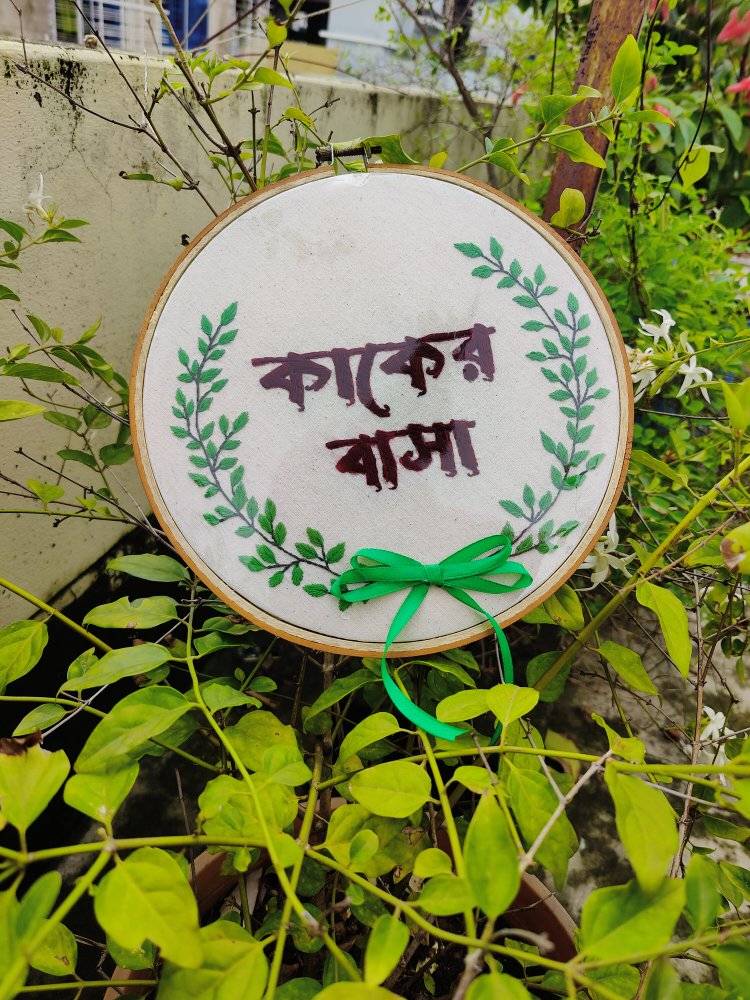 কাকের
বাসা